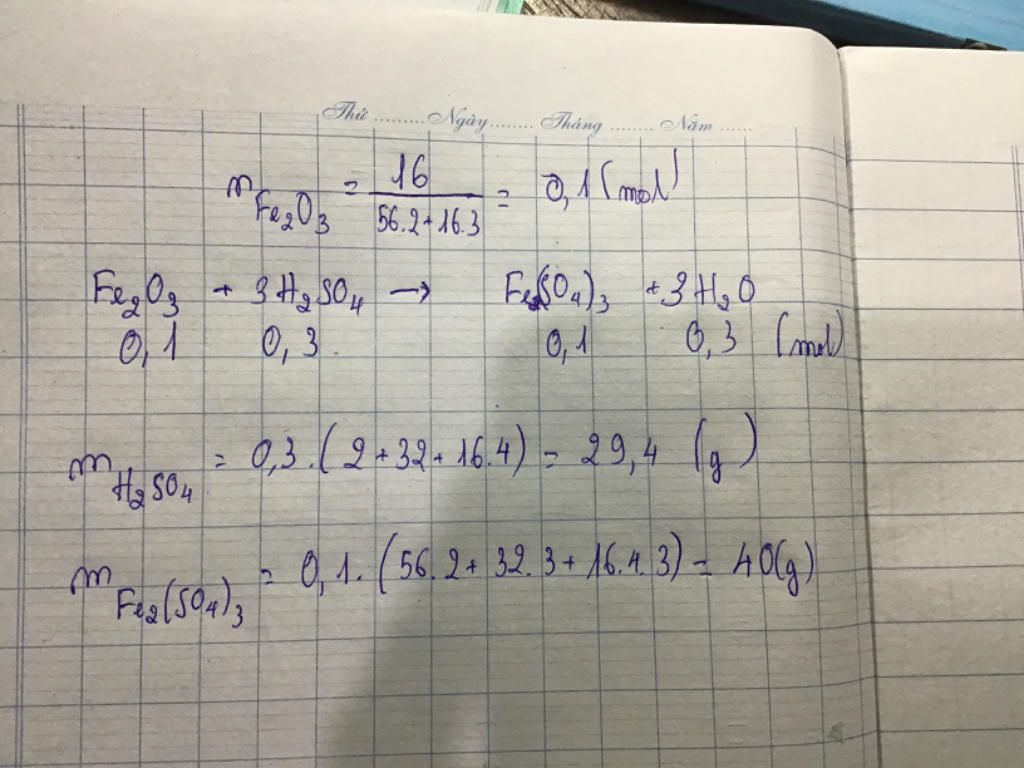 Thứ ......... Ngày ........ Tháng ........ Năm ......
n Fe₂O₃ = 16 / (56.2+16.3) = 0,1 (mol)
Fe₂O₃ + 3H₂SO₄ → Fe₂(SO₄)₃ + 3H₂O
0,1 0,3 0,1 0,3 (mol)
m H₂SO₄ = 0,3.(2+32+16.4) = 29,4 (g)
m Fe₂(SO₄)₃ = 0,1.(56.2+32.3+16.4.3) = 40(g)